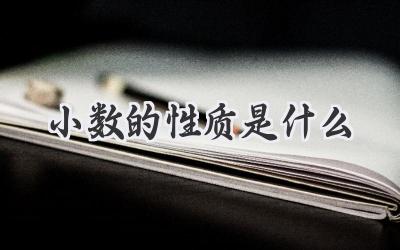 小数的性质是什么